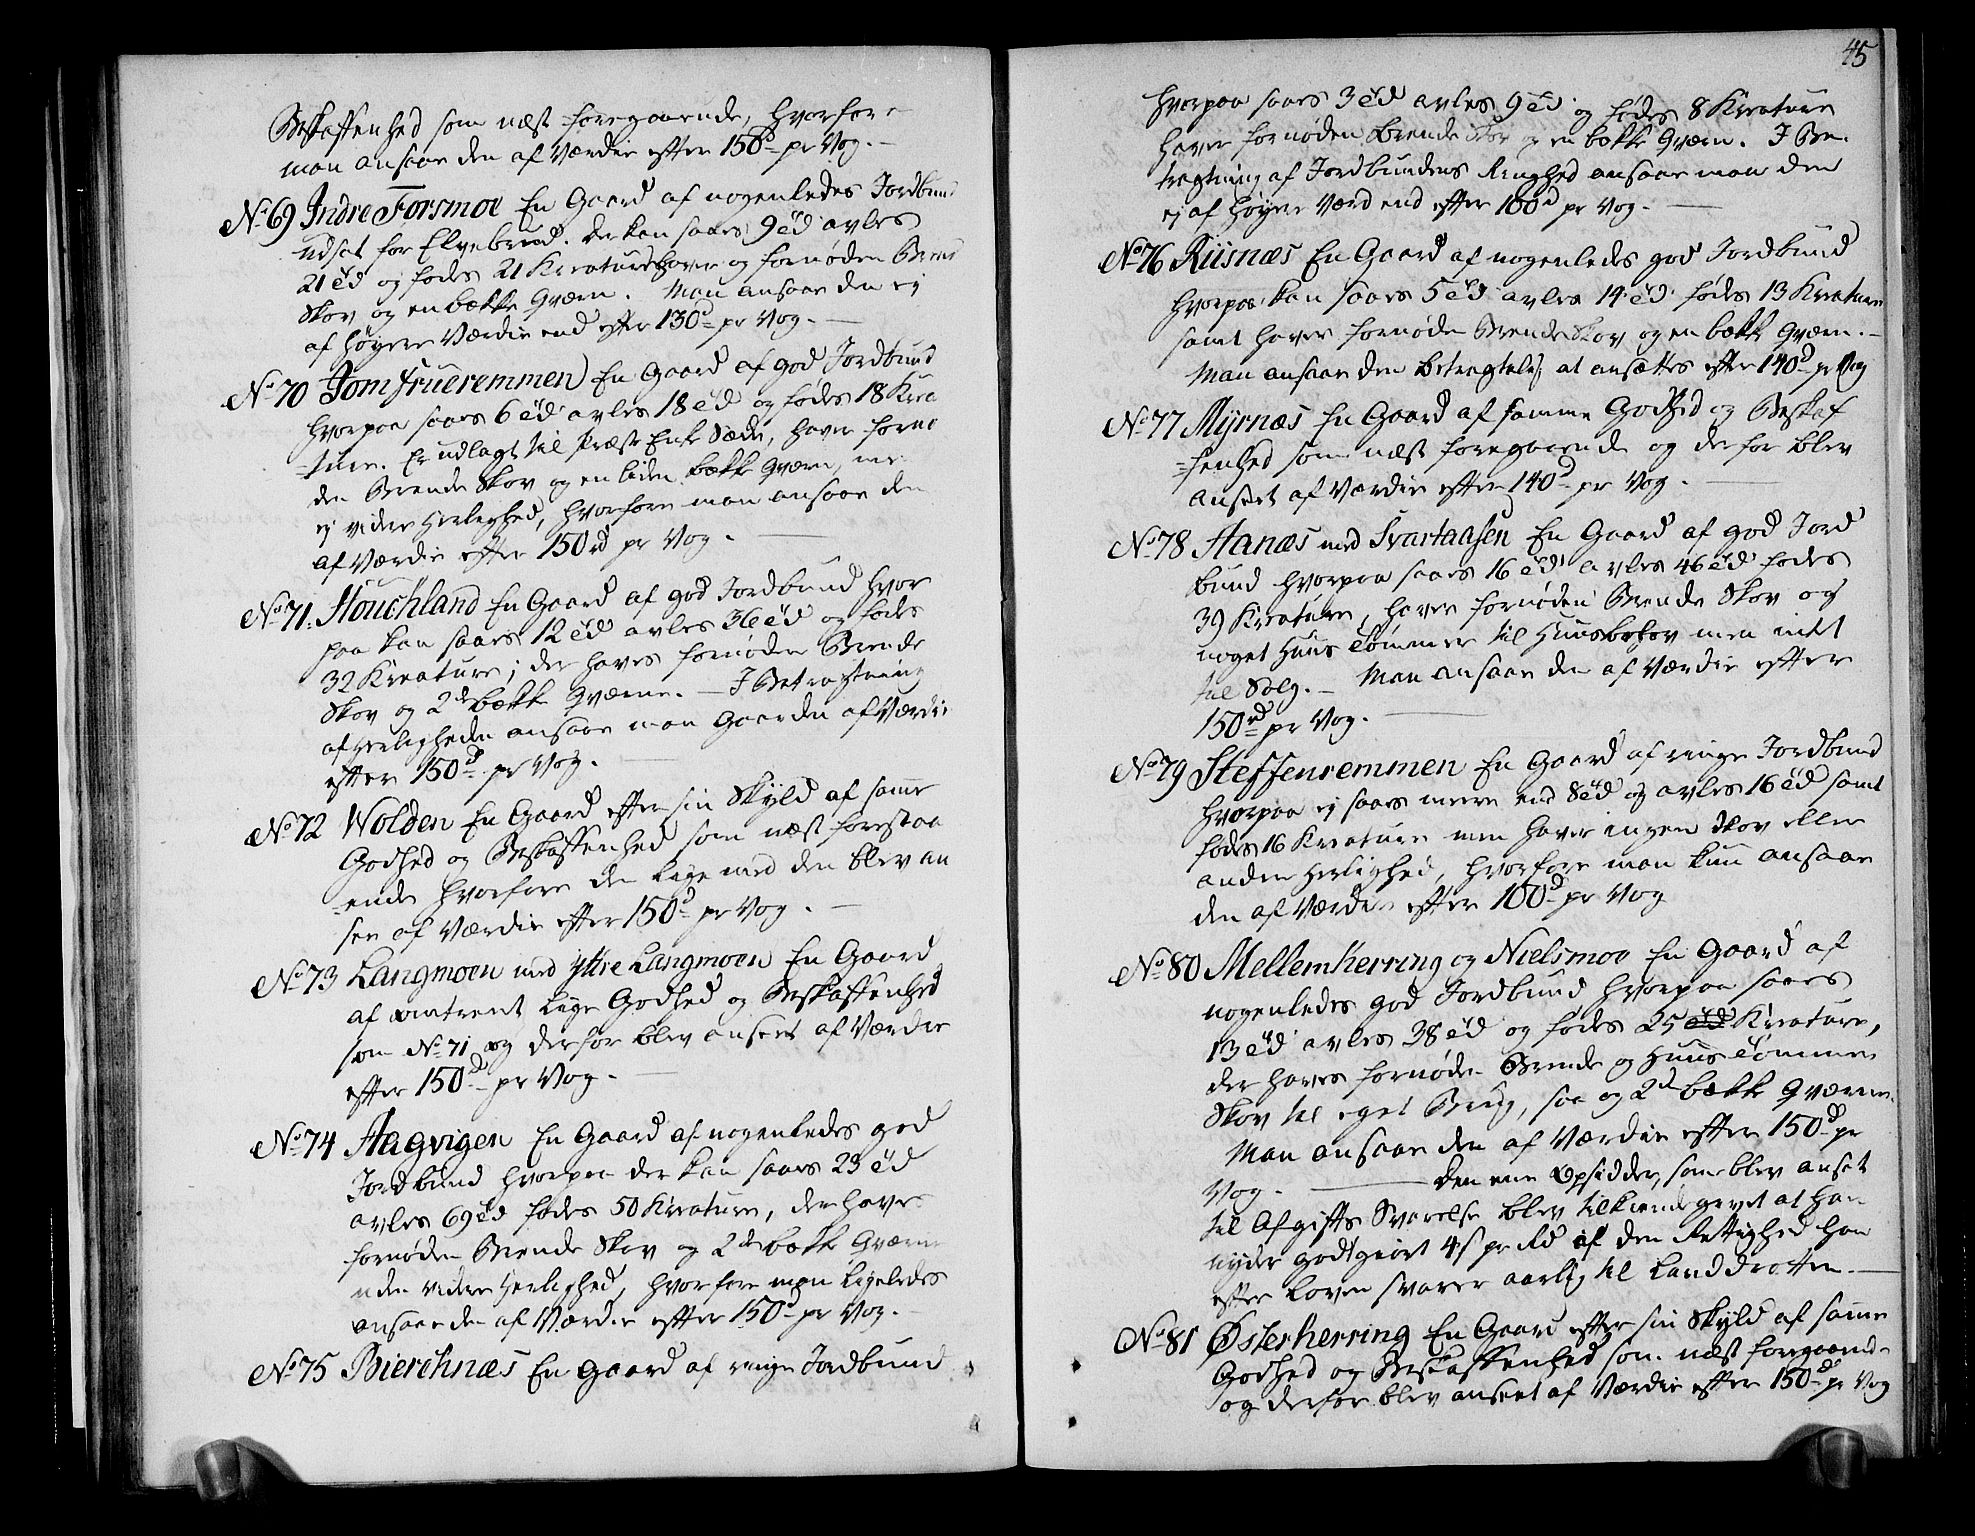 Beskaffenhed som næst foregaaende, hvorfore
man ansaae den af Værdie efter 150d pr Vog. —
No 69 Indre Forsmoe En Gaard af nogenledes Jordbund
udsat for Elvebrud. der kan saaes 9 öd avles
21 öd og fødes 21 Kreature haver og fornøden Brænde
Skov og en bække Qværn. Man ansaae den ej
af høyere Værdie end efter 130d pr Vog. —
No 70 Jomfrueremmen En Gaard af god Jordbund
hvorpaa saaes 6 öd avles 18 öd og fødes 18 Krea
-ture. Er udlagt til Præste Enke Sæde, haver forne
den Brende Skov og en liden bække Qværn, men
ej videre Herlighed, hvorfore man ansaae den
af Værdie efter 150rd pr Vog. —
No 71. Houchland En Gaard af god Jordbund hvor
paa kan saaes 12 öd avles 36 öd og fødes
32 Kreature; der haves fornøden Brende
Skov og 2de bække Qværne. — I Betragtning
af Herligheden ansaae man Gaarden af Værdie
efter 150d pr Vog. —
No 72 Wolden En Gaard efter sin Skyld af samme
Godhed og Beskaffenhed som næst forestaa
-ende hvorfore den lige med den blev an
seet af Værdie efter 150d pr Vog. —
No 73 Langmoen med Yttre Langmoen En Gaard
af omtrent lige Godhed og Beskaffenhed
som No 71 og derfor blev anseet af Værdie
efter 150d pr Vog. —
No 74 Aagvigen En Gaard af nogenledes god
Jordbund hvorpaa der kan saaes 23 öd
avles 69 öd fødes 50 Kreature, der haves
fornøden Brende Skov og 2de bække Qværne
uden videre Herlighed, hvorfore man ligeledes
ansaae den af Værdie efter 150d pr Vog. —
No 75 Bierchnæs En Gaard af ringe Jordbund
45
hvorpaa saaes 3 öd avles 9 öd og fødes 8 Kreature
haver fornøden Brende Skov og en bække Qværn. I Be-
tragtning af Jordbundens Ringhed ansaae man den
ej af høyere Værd end efter 100d pr Vog. —
No 76 Riisnæs En Gaard af nogenledes god Jordbund
hvorpaa kan saaes 5 öd avles 14 öd fødes 13 Kreature
samt haver fornøden Brende Skov og en bække Qværn. —
Man ansaae den betragtelig at ansættes efter 140d pr Vog
No 77 Myrnæs En Gaard af samme Godhed og Beskaf
-fenhed som næst foregaaende og derfor blev
anseet af Værdie efter 140d pr Vog. —
No 78 Aanæs med Svartaasen En Gaard af god Jord
bund hvorpaa saaes 16 öd avles 46 öd fødes
39 Kreature, haver fornøden Brende Skov og
noget Huus Tømmer til Huusbehov men intet
til Salg. — Man ansaae den af Værdie efter
150rd pr Vog. —
No 79 Steffenremmen En Gaard af ringe Jordbund
hvorpaa ej saaes meere end 8 öd og avles 16 öd samt
fødes 16 Kreature men haver ingen Skov eller
anden Herlighed, hvorfore man kun ansaae
den af Værdie efter 100d pr Vog
No 80 Mellemherring og Nielsmoe En Gaard af
nogenledes god Jordbund hvorpaa saaes
13 öd avles 38 öd og fødes 25 öd Kreature,
der haves fornøden Brende og Huus Tømmer
Skov til eget Brug, saa og 2de bække Qværne.
Man ansaae den af Værdie efter 150d pr
Vog. — Den ene Opsidder, som blev ansat
til Afgifts Svarelse blev tilkiendegivet at han
nyder godtgiort 4s pr Rd af den Rettighed han
efter Loven svarer aarlig til Landdrotten. —
No 81 Østerherring En Gaard efter sin Skyld af samme
Godhed og Beskaffenhed som næst foregaaende
og derfor blev anseet af Værdie efter 150d pr Vog